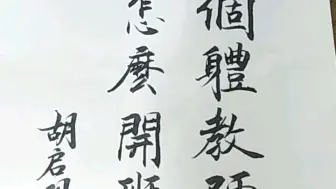 個體教師
怎麼開班
胡启明